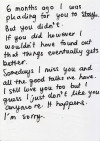 6 months ago I was
pleading for you to stay.
But you didn't.
If you did however I
wouldn't have found out
that things eventually gets
better.
Somedays I miss you and
all the good talks we have.
I still love you too but I
guess I just don't like you
anymore. It happens.
I'm sorry.